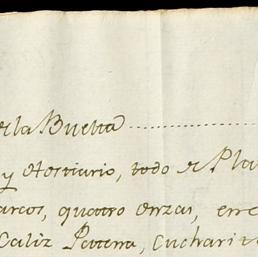 de la Buelta
y Ostiario, todo de Pla
arcos, quatro onzas, en el
Caliz Patena, Cucharita